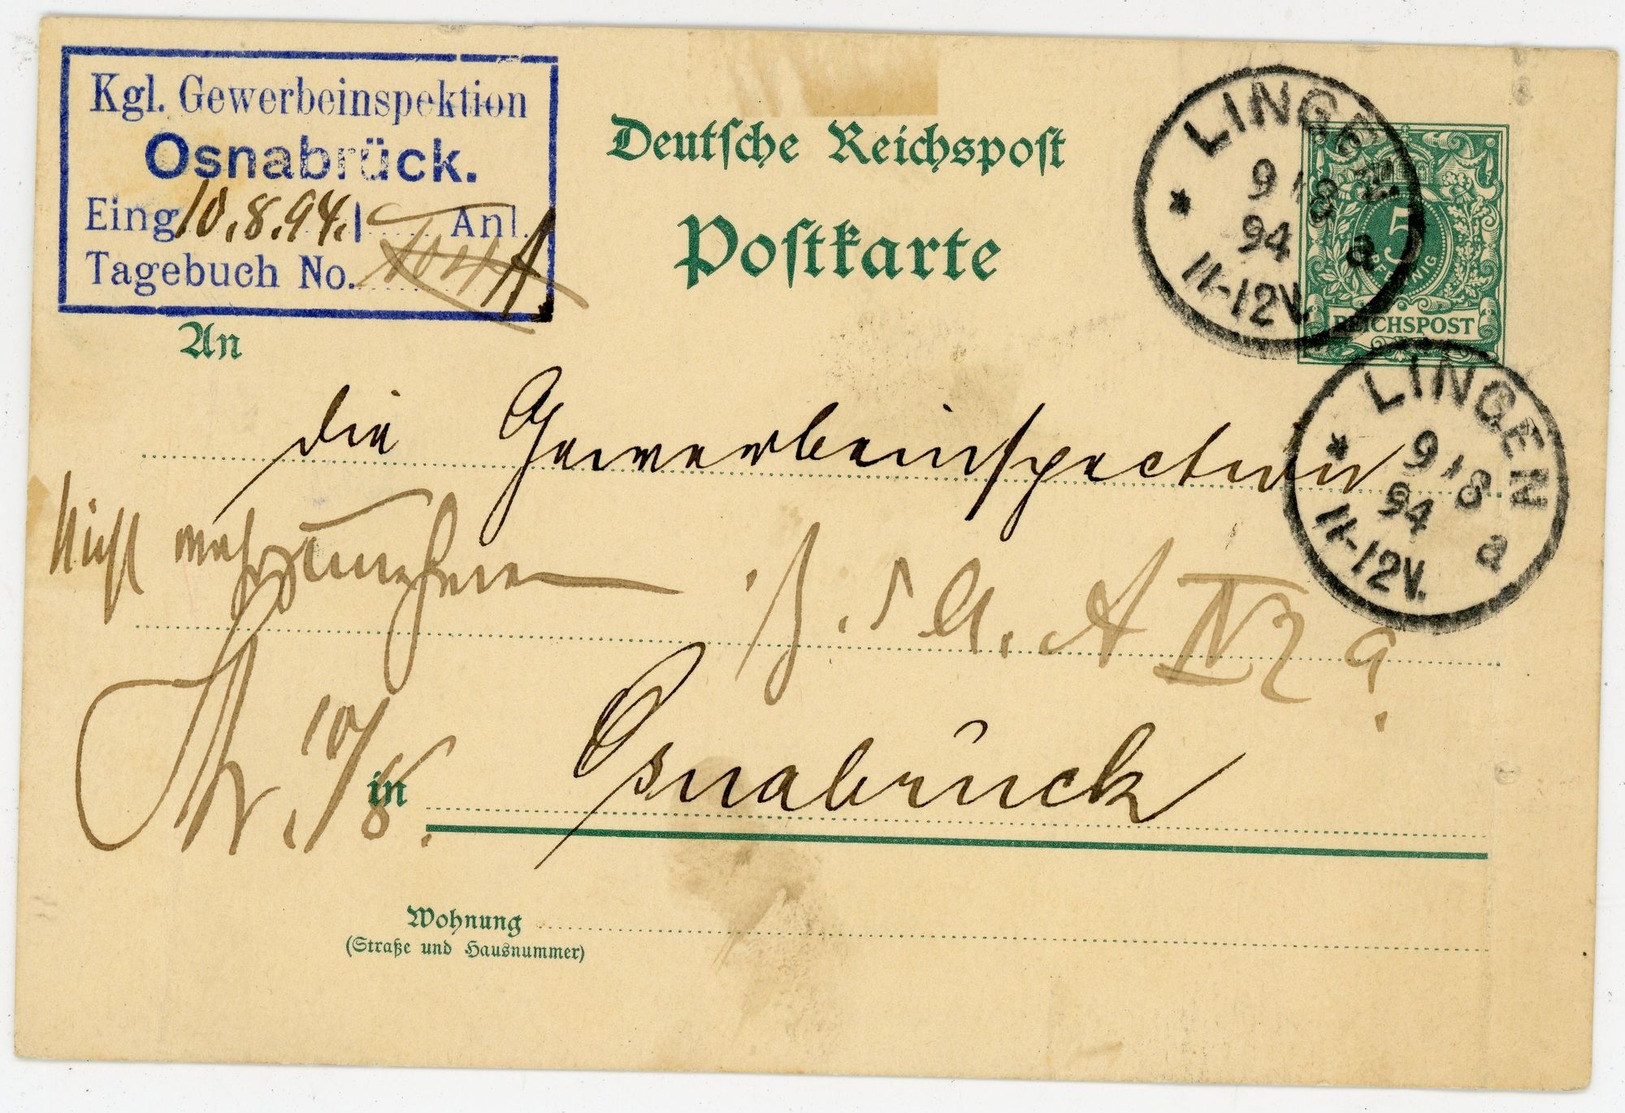 Kgl. Gewerbeinspektion
Osnabrück.
Eing. 10.8.94. Anl.
Tagebuch No.
Deutsche Reichspost
Postkarte
LINGEN
9 / 8
94
a
11-12V.
5
PFENNIG
REICHSPOST
LINGEN
9 / 8
94
a
11-12V.
An
die Gewerbeinspection
Nicht
z. d. A. A IV 2 a
10/8.
in Osnabrück
Wohnung
(Straße und Hausnummer)